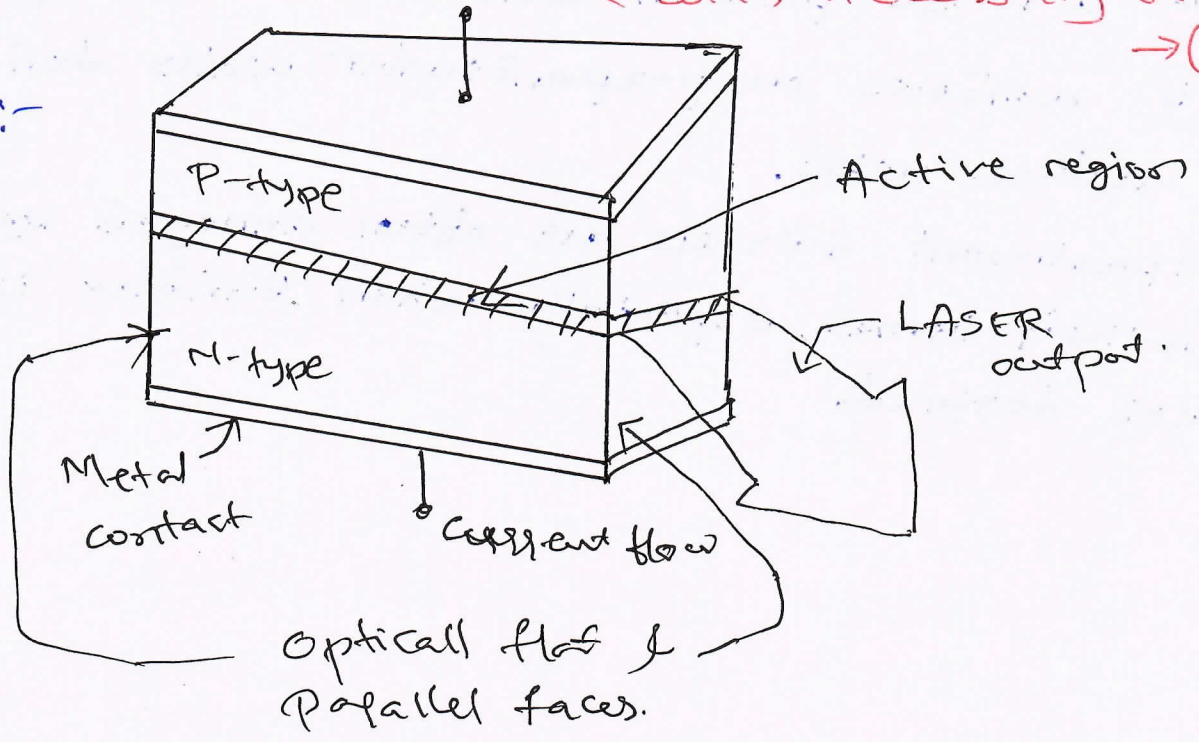 P-type
Active region
LASER
output.
N-type
Metal
contact
Current flow
Opticall flat &
Parallel faces.